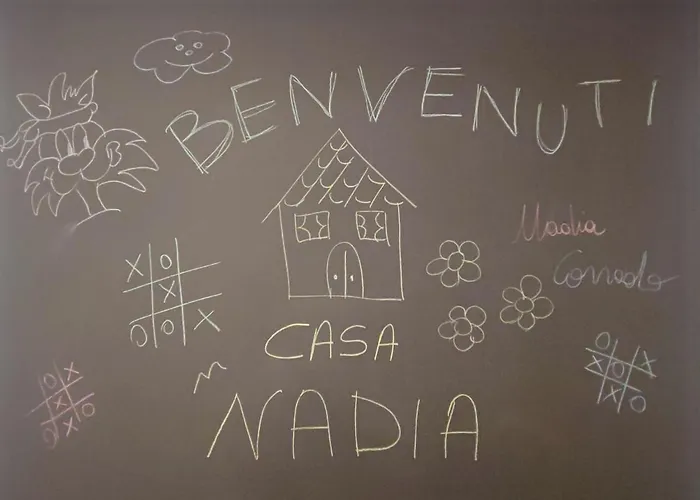 BENVENUTI
Nadia
Corrado
CASA
NADIA